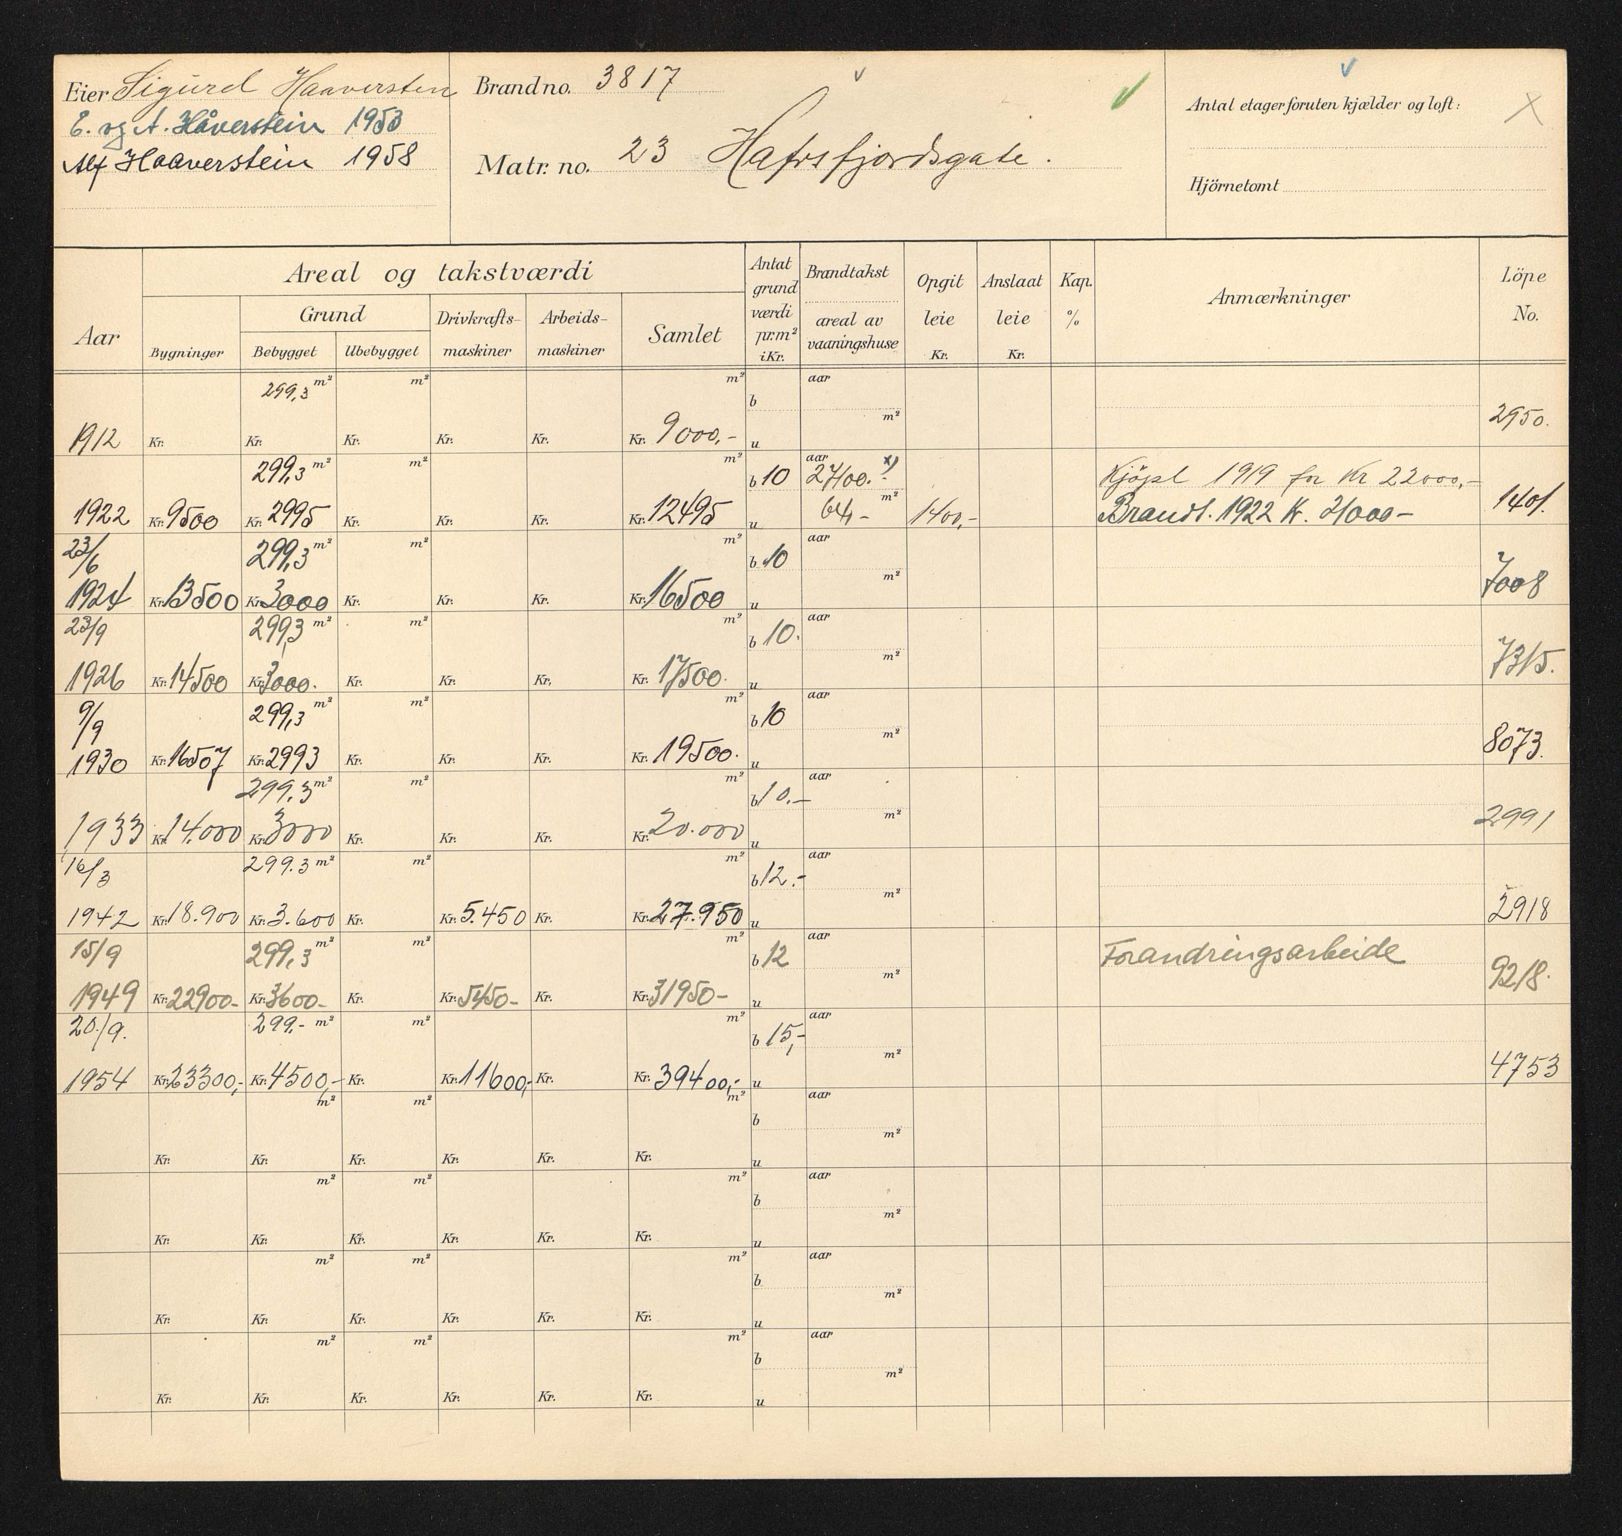 Eier Sigurd Haaverstein
E. og A. Håverstein 1953
Alf Haaverstein 1958
Brand no. 3817
Matr. no. 23 Hafrsfjordsgate.
Antal etager foruten kjælder og loft:
Hjörnetomt
Aar
Areal og takstværdi
Grund
Bygninger Bebygget Ubebygget
Drivkrafts-maskiner
Arbeids-maskiner
Samlet
Antat grund værdi pr. m² i Kr.
Brandtakst
areal av vaaningshuse
Opgit leie Kr.
Anslaat leie Kr.
Kap. %
Anmærkninger
Löpe No.
299,3 m² m² m² aar
b m²
1912 Kr. Kr. Kr. Kr. Kr. Kr. 9000,- u 2950.
299,3 m² m² m² b 10 aar x) Kjöpt 1919 for Kr 22000,-
1922 Kr. 9500 Kr. 2995 Kr. Kr. Kr. Kr. 12495 u 64,- m² 1400,- Brandt. 1922 K. 21000- 1401.
23/6 299,3 m² m² m² b 10 aar
1924 Kr. 13500 Kr. 3000 Kr. Kr. Kr. Kr. 16500 u m² 7008
23/9 299,3 m² m² m² b 10. aar
1926 Kr. 14500 Kr. 3000. Kr. Kr. Kr. Kr. 17500. u m² 7315.
9/9 299,3 m² m² m² b 10 aar
1930 Kr. 16507 Kr. 2993 Kr. Kr. Kr. Kr. 19500. u m² 8073.
299,3 m² m² m² b 10.- aar
1933 Kr. 14.000 Kr. 3000 Kr. Kr. Kr. Kr. 20.000 u m² 2991
16/3 299.3 m² m² m² b 12.- aar
1942 Kr. 18.900 Kr. 3.600 Kr. Kr. 5.450 Kr. Kr. 27.950 u m² 2918
15/9 299,3 m² m² m² b 12 aar Forandringsarbeide
1949 Kr. 22900- Kr. 3600- Kr. Kr. 5450- Kr. Kr. 31950- u m² 9218.
20./9. 299.- m² m² m² b 15,- aar
1954 Kr. 23300,- Kr. 4500,- Kr. Kr. 11600,- Kr. Kr. 39400,- u m² 4753
m² m² m² b aar
Kr. Kr. Kr. Kr. Kr. Kr. u m²
m² m² m² b aar
Kr. Kr. Kr. Kr. Kr. Kr. u m²
m² m² m² b aar
Kr. Kr. Kr. Kr. Kr. Kr. u m²
m² m² m² b aar
Kr. Kr. Kr. Kr. Kr. Kr. u m²